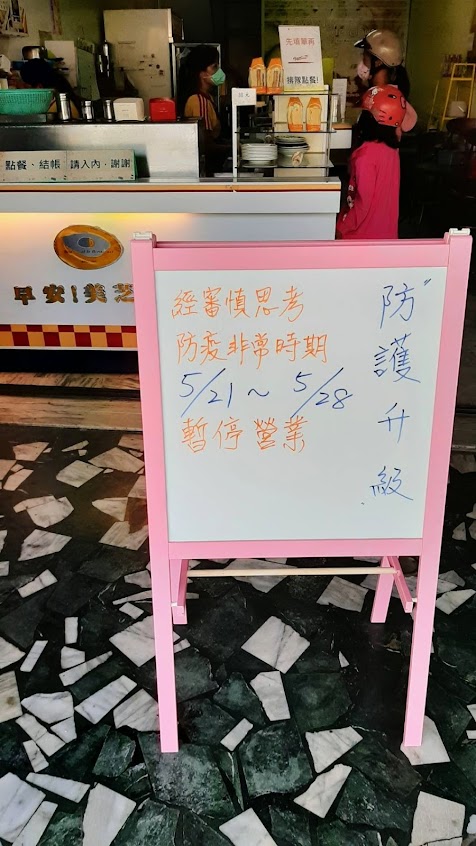 先填單再
排隊點餐!
點餐、結帳 請入內,謝謝
早安!美芝
經審慎思考
防疫非常時期
5/21~5/28
暫停營業
防護升級